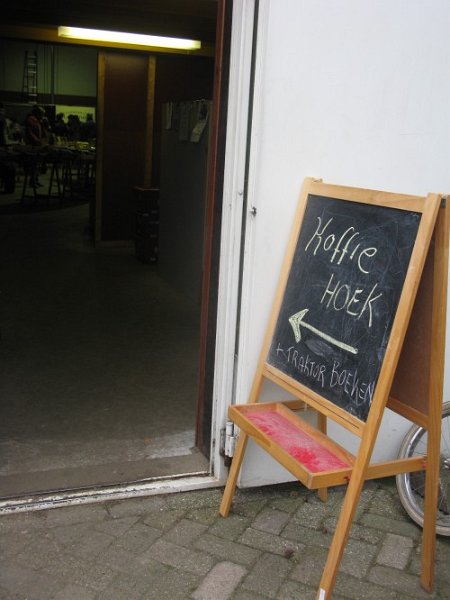 Koffie
HOEK
+ TRAKTOR BOEKEN